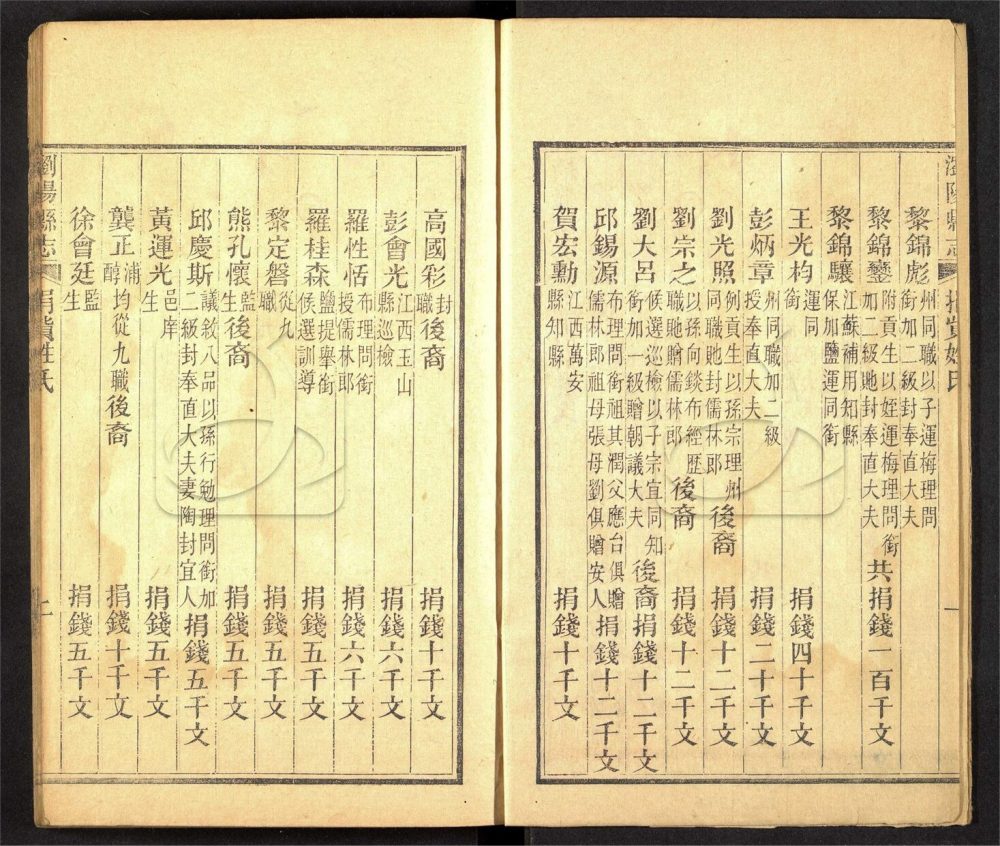 瀏陽縣志 捐貲姓氏 一
黎錦彪 州同職以子運梅理問銜加二級封奉直大夫
黎錦鑾 附貢生以姪運梅理問銜加二級貤封奉直大夫 共捐錢一百千文
黎錦驤 江蘇補用知縣保加鹽運同銜
王光枃 運同銜 捐錢四十千文
彭炳章 州同職加二級授奉直大夫 捐錢二十千文
劉光照 例貢生以孫宗理州同職貤封儒林郎 後裔 捐錢十二千文
劉宗之 以孫向錟布經歷職貤贈儒林郎 後裔 捐錢十二千文
劉大呂 候選巡檢以子宗宜同知銜加一級贈朝議大夫 後裔捐錢十二千文
邱錫源 布理問加儒林郎祖其潤父應台俱贈儒林郎祖母張母劉俱贈安人 捐錢十二千文
賀宏勳 江西萬安縣知縣 捐錢十千文
高國彩 封職 後裔 捐錢十千文
彭會光 江西玉山縣巡檢 捐錢六千文
羅性恬 布理問銜授儒林郎 捐錢六千文
羅桂森 鹽提舉銜候選訓導 捐錢五千文
黎定磐 從九職 捐錢五千文
熊孔懷 監生 後裔 捐錢五千文
邱慶斯 議敘八品以孫行勉理問銜加二級封奉直大夫妻陶封宜人 捐錢五千文
黃運光 邑庠生 捐錢五千文
龔正 浦醇 均從九職後裔 捐錢十千文
徐會廷 監生 捐錢五千文
瀏陽縣志 捐貲姓氏 二